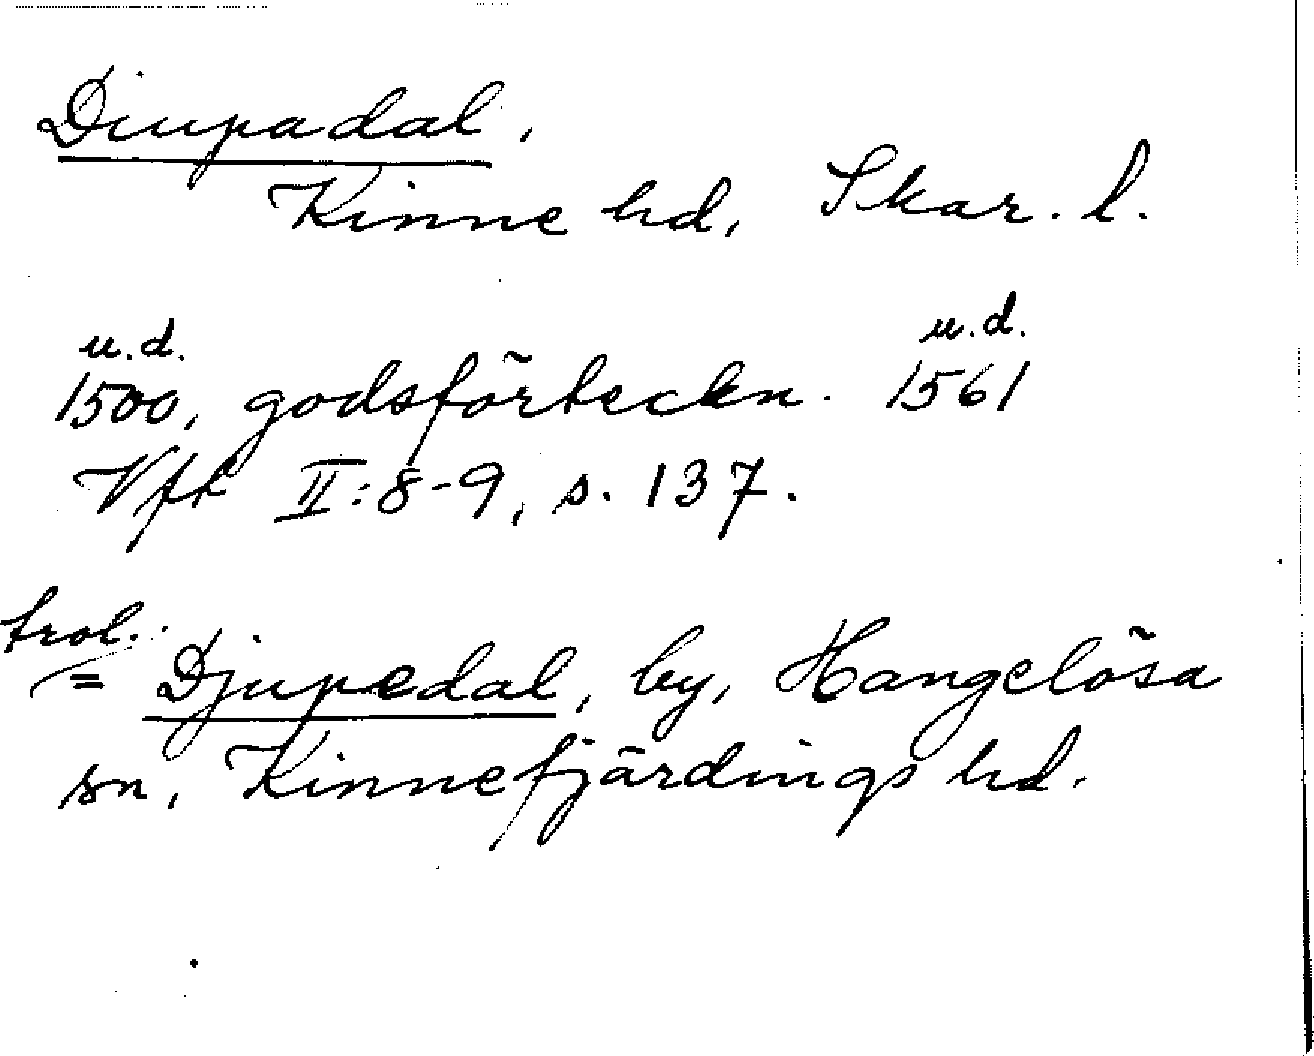 Diupadal,
Kinne hd, Skar. l.
u.d. u.d.
1500, godsförteckn. 1561
Vft II:8-9, s. 137.
trol.
= Djupedal, by, Hangelösa
sn, Kinnefjärdings hd.